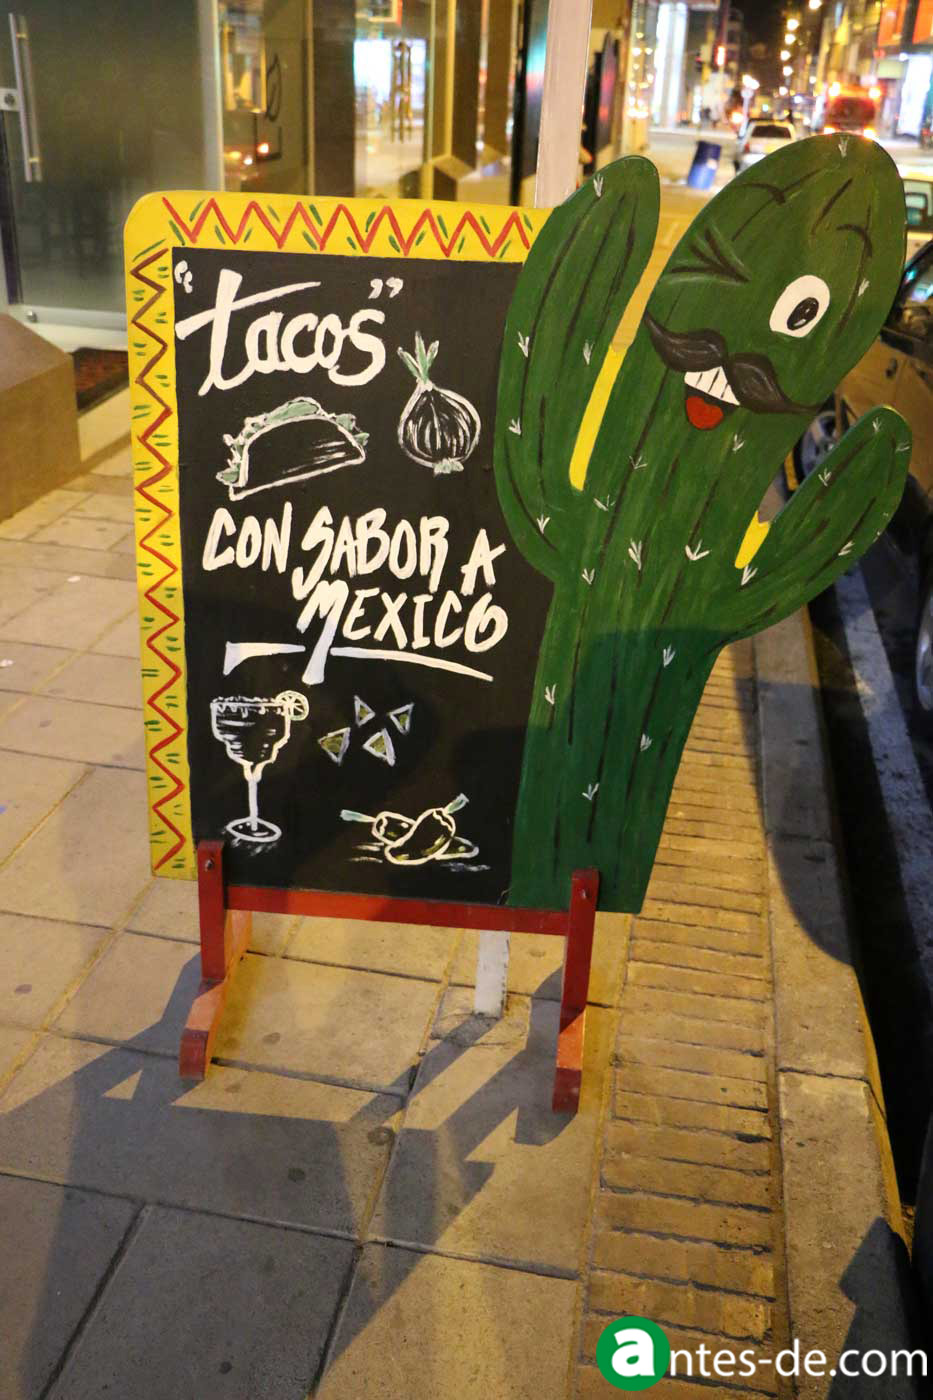 "tacos"
CON SABOR A
MEXICO
antes-de.com